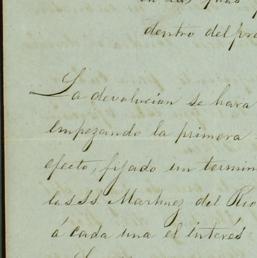 dentro del
La devolucion se hara
empezando la primera
efecto, fijado un termin
los SS Martinez del Rio
á cada una el interés